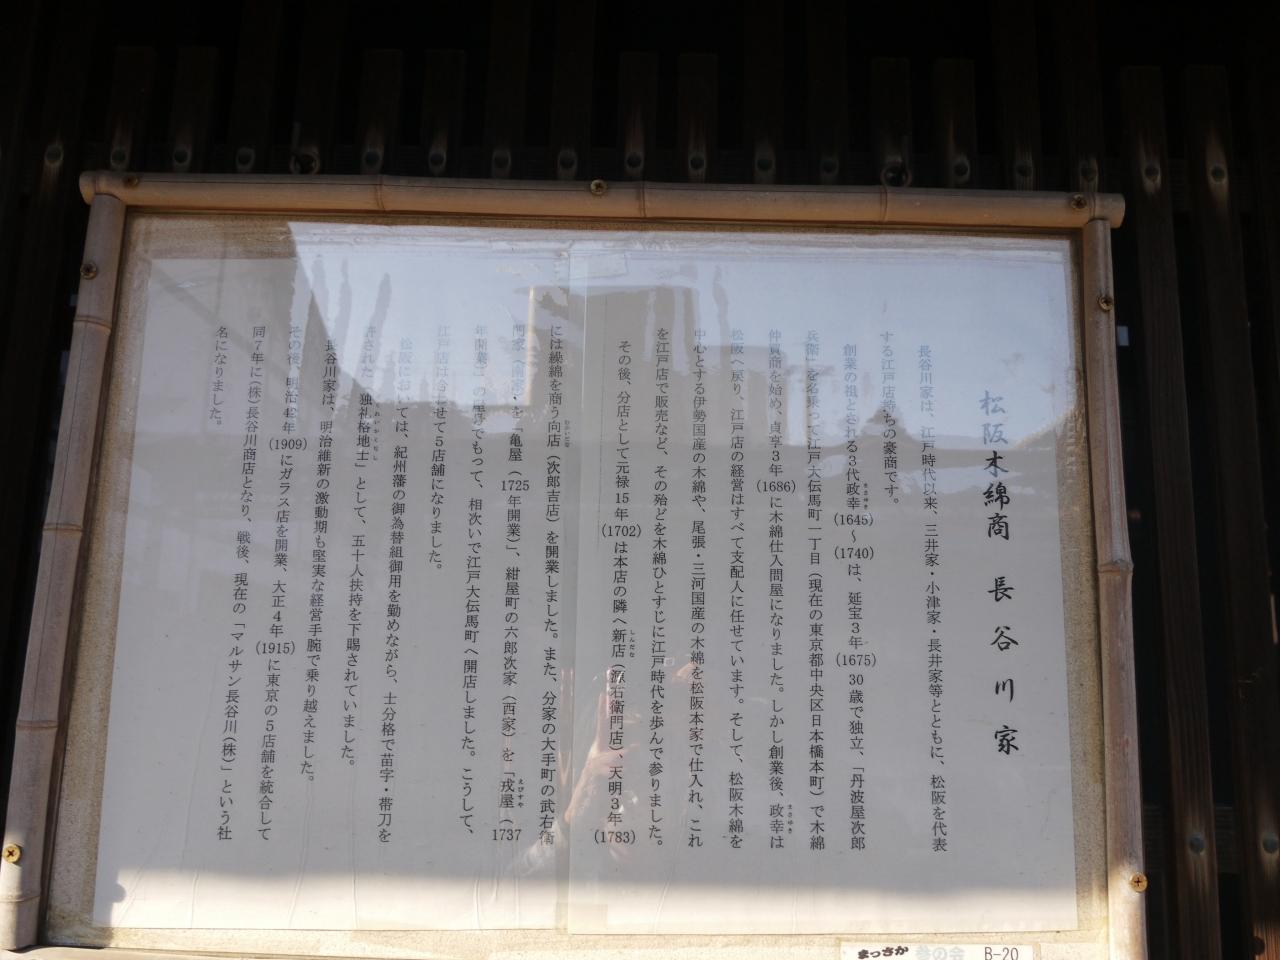 松阪木綿商 長谷川家
長谷川家は、江戸時代以来、三井家・小津家・長井家等とともに、松阪を代表
する江戸店持ちの豪商です。
創業の祖とされる3代政幸(1645)～(1740)は、延宝3年(1675)30歳で独立、「丹波屋次郎
まさゆき
兵衛」を名乗って江戸大伝馬町一丁目(現在の東京都中央区日本橋本町)で木綿
仲買商を始め、貞享3年(1686)に木綿仕入問屋になりました。しかし創業後、政幸は
まさゆき
松阪へ戻り、江戸店の経営はすべて支配人に任せています。そして、松阪木綿を
中心とする伊勢国産の木綿や、尾張・三河国産の木綿を松阪本家で仕入れ、これ
を江戸店で販売など、その殆どを木綿ひとすじに江戸時代を歩んで参りました。
その後、分店として元禄15年(1702)は本店の隣へ新店(源右衛門店)、天明3年(1783)
しんだな
には繰綿を商う向店(次郎吉店)を開業しました。また、分家の大手町の武右衛
むかいだな
門家(南家)・を「亀屋(1725年開業)」、紺屋町の六郎次家(西家)を「戎屋(1737
えびすや
年開業)」の屋号でもって、相次いで江戸大伝馬町へ開店しました。こうして、
江戸店は合わせて5店舗になりました。
松阪においては、紀州藩の御為替組御用を勤めながら、士分格で苗字・帯刀を
許された「独礼格地士」として、五十人扶持を下賜されていました。
長谷川家は、明治維新の激動期も堅実な経営手腕で乗り越えました。
その後、明治42年(1909)にガラス店を開業、大正4年(1915)に東京の5店舗を統合して
同7年に(株)長谷川商店となり、戦後、現在の「マルサン長谷川(株)」という社
名になりました。
まっさか
B-20